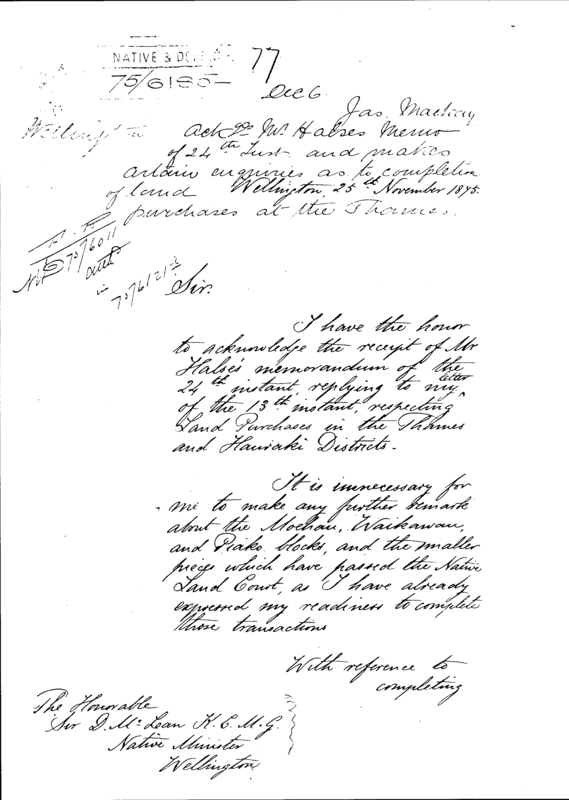 NATIVE & DE
75/6185
77
Dec 6
Jas. Mackay
Wellington
Ack Mr Halses Memo
of 24th Inst and makes
certain enquiries as to completion
of land
Wellington, 25th November 1875.
purchases at the Thames.
75/6011
75/6121
Sir.
I have the honor
to acknowledge the receipt of Mr
Halse's memorandum of the
24th instant, replying to my letter
of the 13th instant, respecting
Land Purchases in the Thames
and Hauraki Districts.
It is unnecessary for
me to make any further remark
about the Moehau, Waikawau,
and Piako blocks, and the smaller
pieces which have passed the Native
Land Court, as I have already
expressed my readiness to complete
those transactions
With reference to
completing
The Honorable
Sir D. McLean K.C.M.G.
Native Minister
Wellington